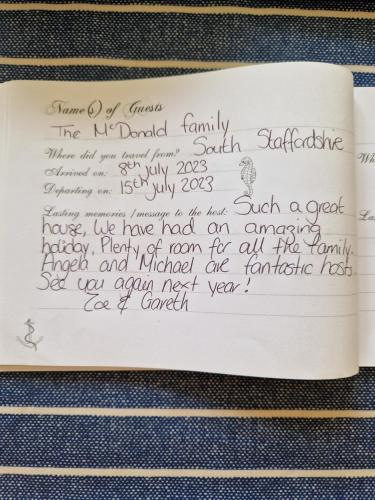 Name(s) of Guests
The McDonald family
Where did you travel from? South Staffordshire
Arrived on: 8th July 2023
Departing on: 15th July 2023
Lasting memories / message to the host: Such a great
house, We have had an amazing
holiday. Plenty of room for all the family.
Angela and Michael are fantastic hosts
See you again next year!
Zoe & Gareth
Wh
La